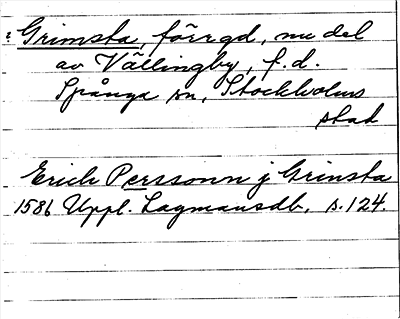 : Grimsta, förrgd, nu del
av Vällingby, f.d.
Spånga sn, Stockholms
stad
Erich Perssonn j Grinsta
1586 Uppl. Lagmansdb. s. 124.